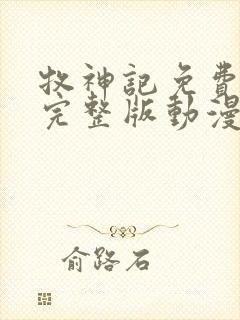 牧神記免費
完整版動漫
俞路石